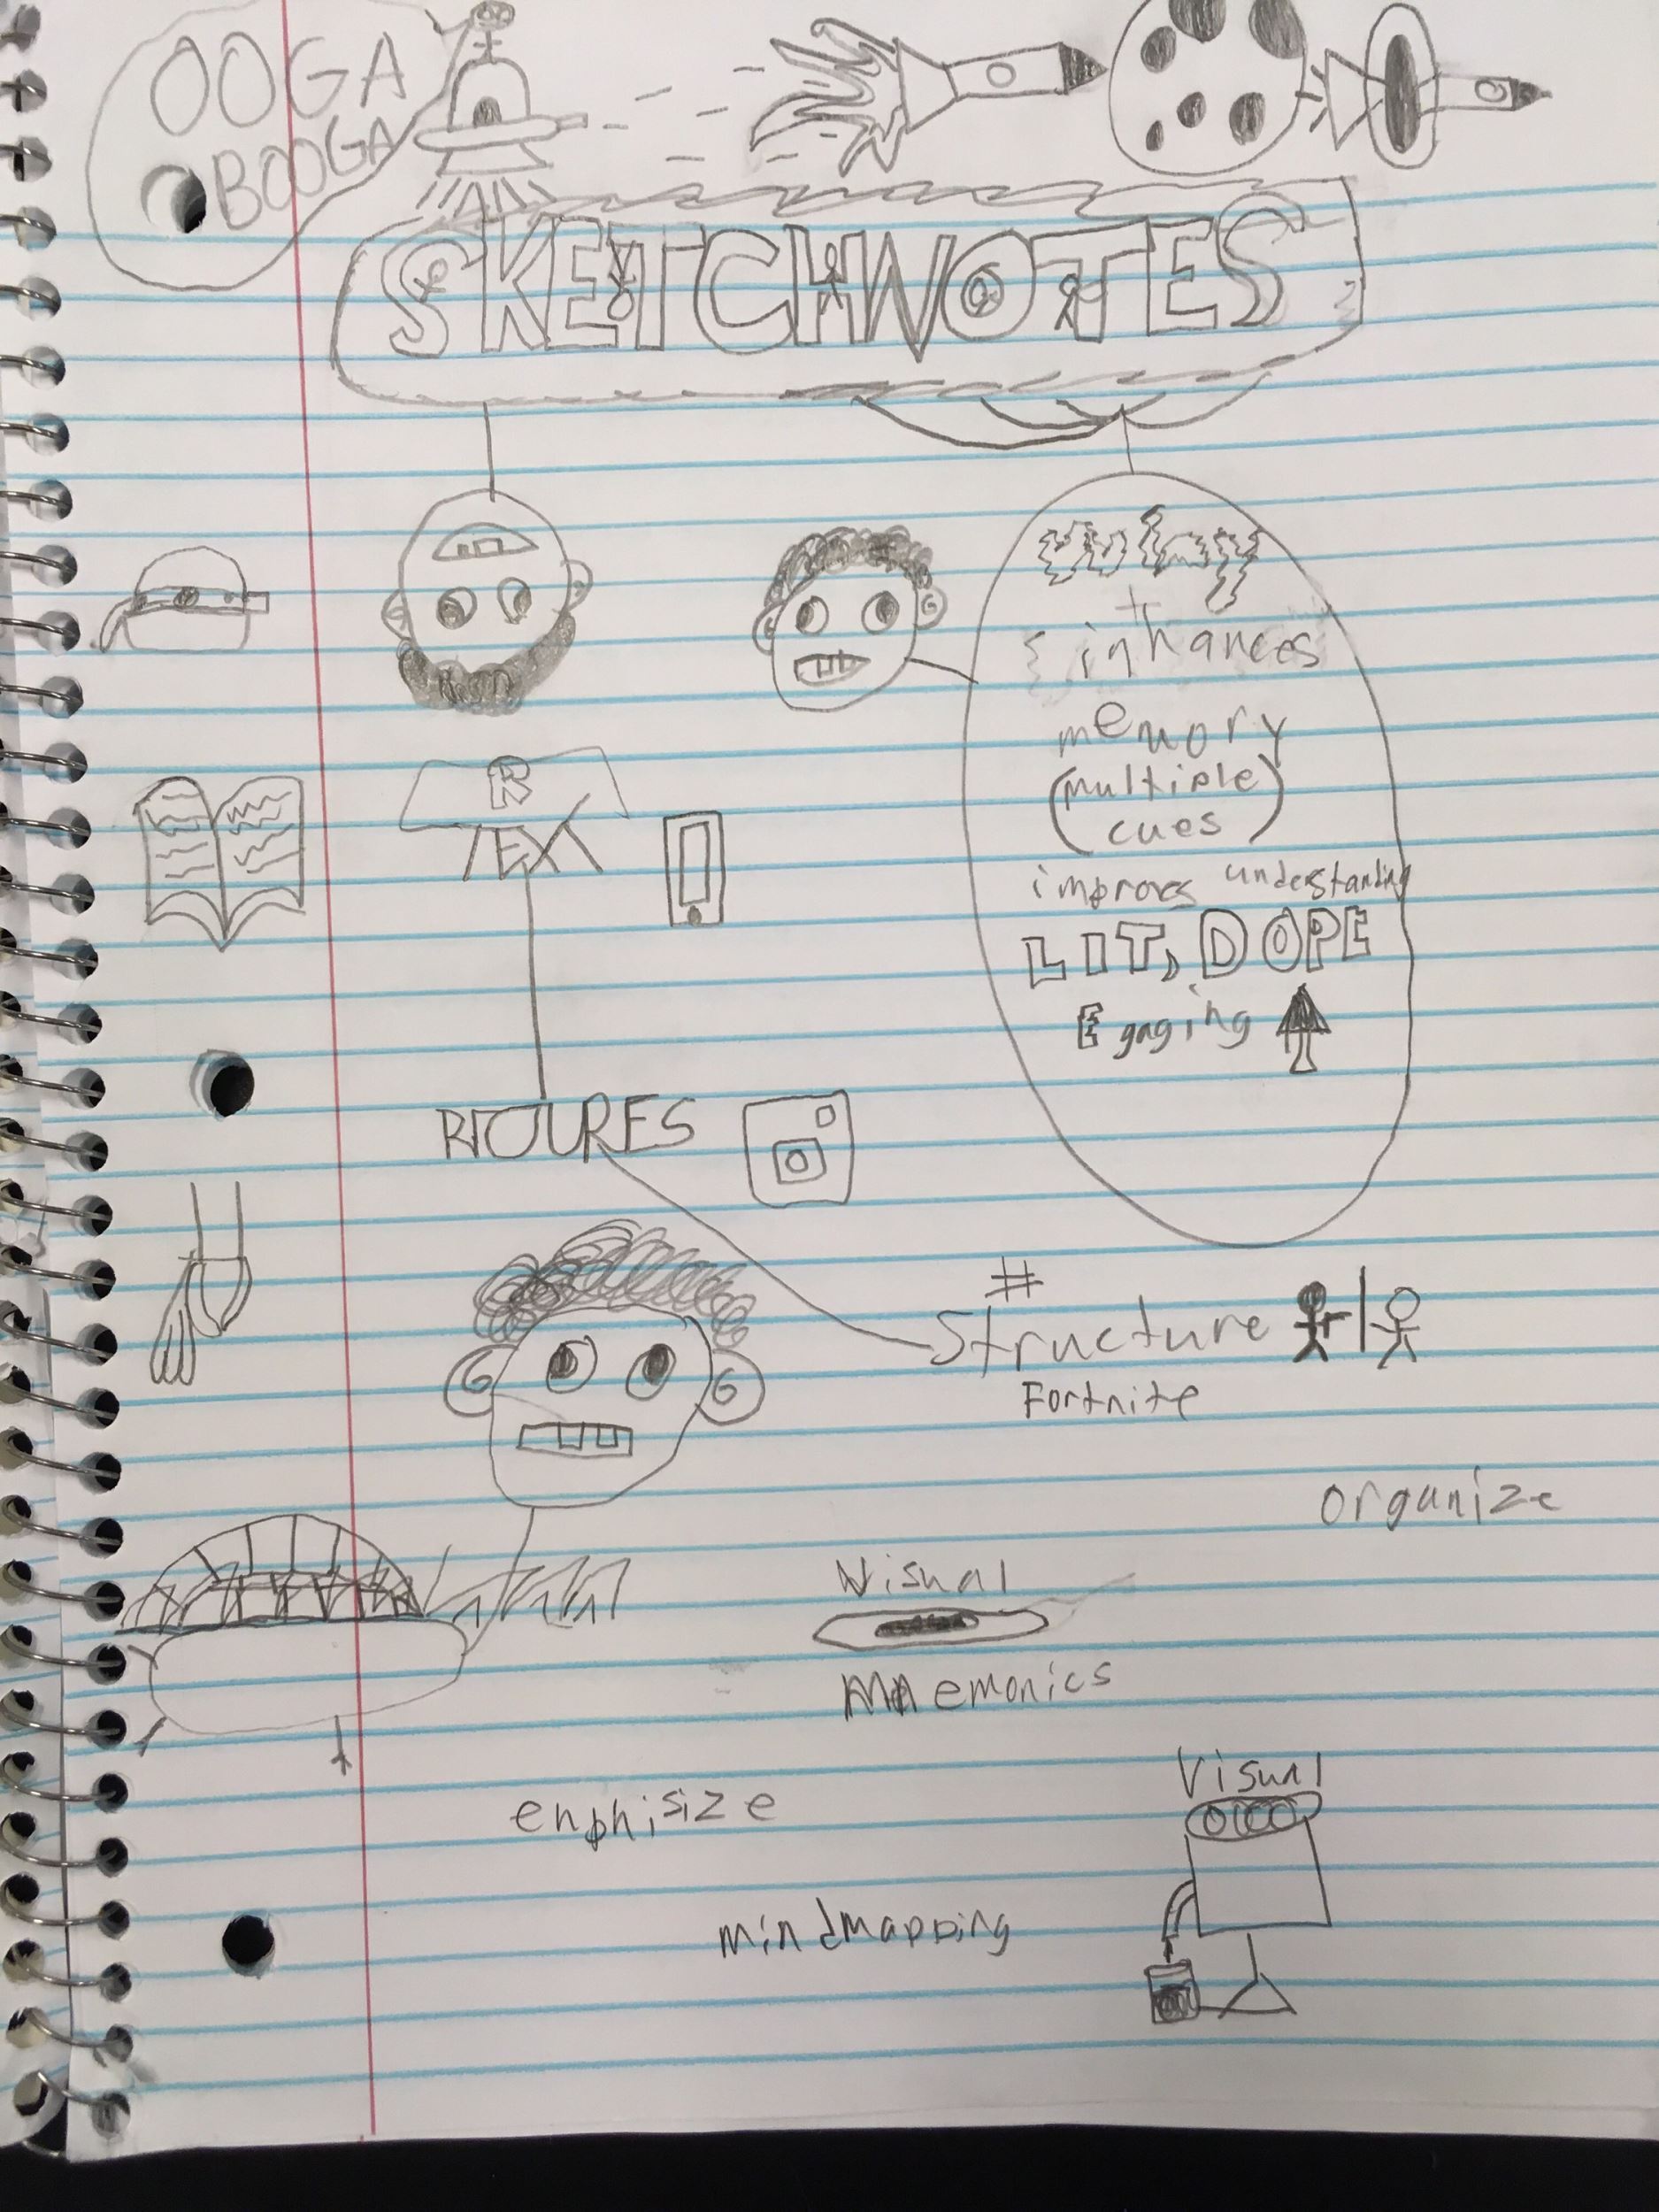 OOGA
BOOGA
SKETCHNOTES
why
inhances
memory
(multiple
cues)
improves understanding
LIT, DOPE
Egaging
R
TEXT
PICTURES
#
Structure
Fortnite
organize
Visual
Mnemonics
Visual
enphisize
mindmapping